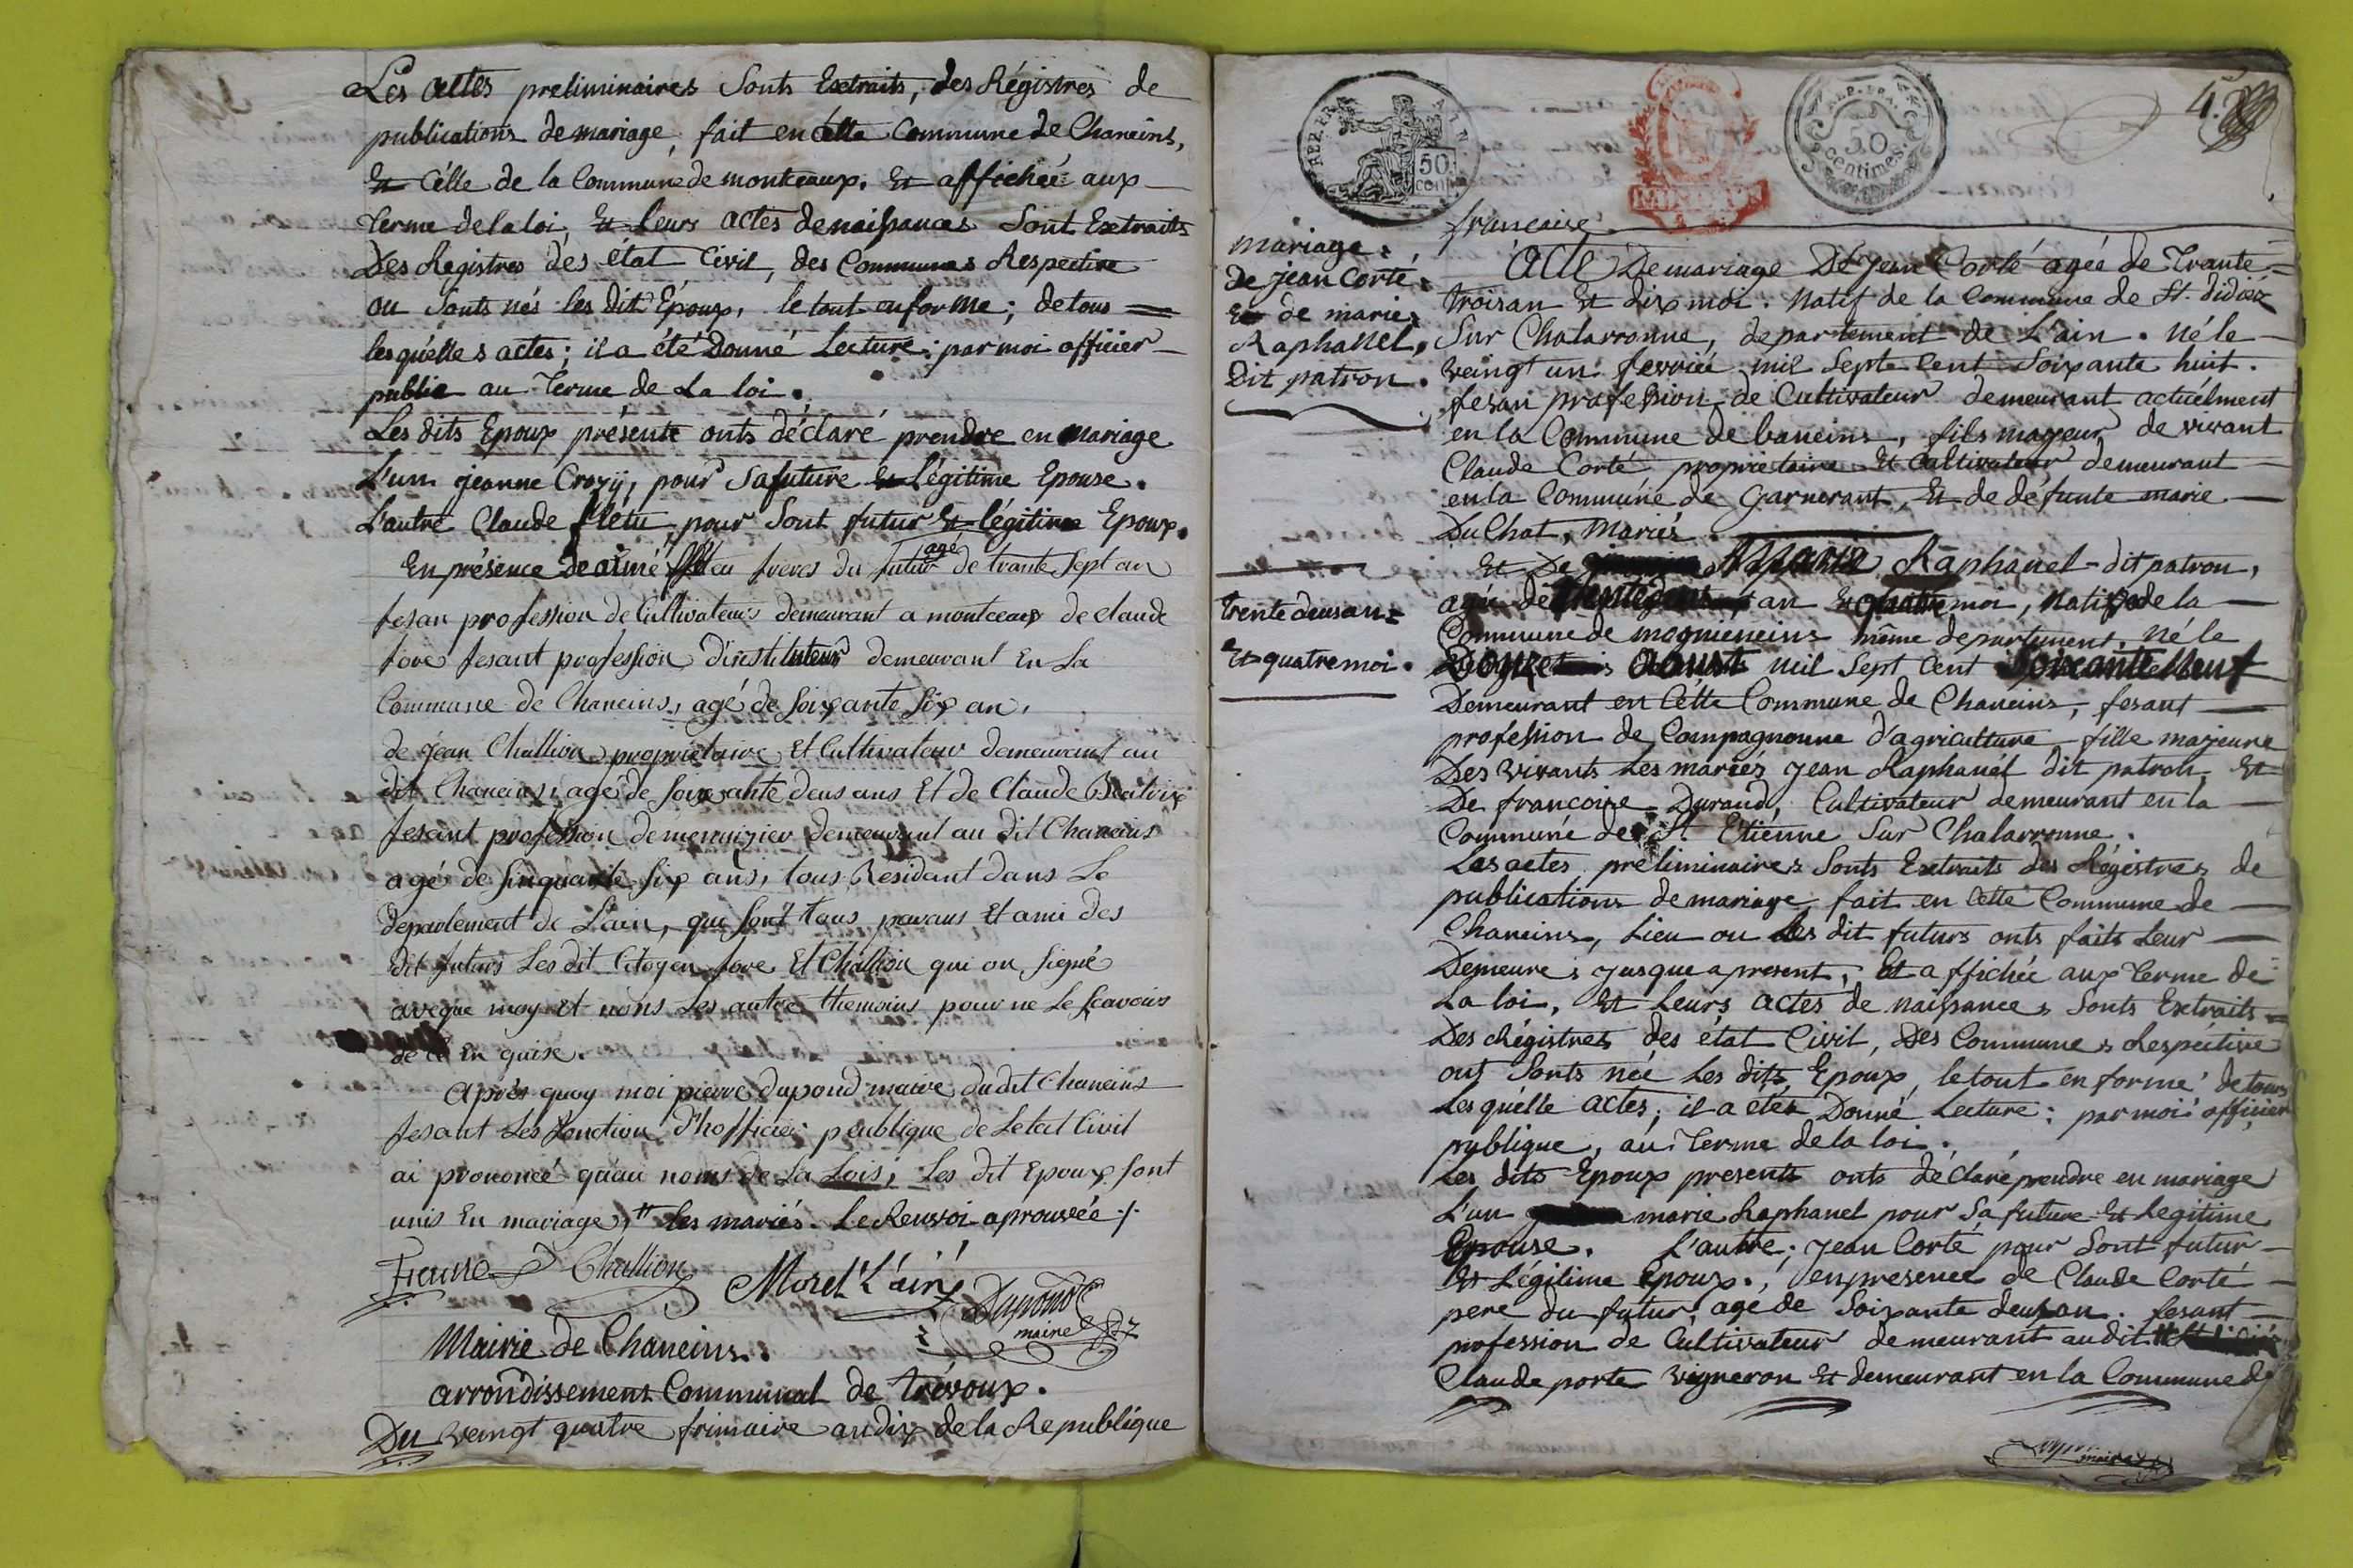 Les actes preliminaires Sonts Extraits, des Régistres de
publications de mariage, fait en Cette Commune de Chaneins,
Et Célle de la Commune de montceaux. Et affichée aux
Terme de la loi, Et leurs actes de naissances Sont Extraits
Des Registres des état Civil, des Communes Respective
ou Sonts nés les dit Époux, le tout en forme; de tous
les quélles actes; il a été Donné Lecture; par moi officier
public au Terme de La loi.
Les dits Epoux présente onts déclaré prendre en Mariage
L'un jeanne Crozy, pour Sa future Et Légitime Epouse.
L'autre Claude flétu pour Sont futur Et légitime Epoux.
En présence de aimé fléteu freres du futur agé de trante Sept an
fesan profession de Cultivateurs demeurant a montceaux de claude
fore fesant profession d'instituteur demeurant En La
Commune de Chaneins, agé de soixante six an,
de jean Challion propriétaire Et Cultivateur demeurant au
dit Chaneins, agé de soixante deus ans Et de Claude Beatrix
fesant profession de menuizier demeurant au dit Chaneins
agé de sinquante six ans, tous Residant dans Le
departement de L'ain, qui sont tous parans Et ami des
dit futurs Les dit Citoyen fore Et Challion qui on signé
aveque moy et nons Les autre themoins pour ne Le scavoirs
de ce En quise.
Après quoy moi pierre dupond maire du dit Chaneins
fesant Les fonction d'hofficier peublique de Letat Civil
ai prononcé qu'au noms de La Lois, Les dit Epoux sont
unis En mariage, " les mariés. Le Renvoi aprouvée ./.
Challion
Morel L'ainé
Dupond
maire
Mairie de Chaneins.
arrondissement Communal de trévoux.
Du veingt quatre frimaire an dix de la Republique
4.
REP. FRA.
50
cent
50
centimes.
francaise.
mariage.
De jean Corté.
Et de marie
Raphanel,
Dit patron.
Acte De mariage De jean Corté agée de Trante
troisan Et dix moi. Natif de la Commune de St. didier
Sur Chalarronne, departement de L'ain. Né le
veingt un fevrié mil Sept Cent Soixante huit.
fesan profession de Cultivateur demeurant actuélment
en la Commune de baneins, fils mayeur de vivant
Claude Corté proprietaire Et Cultivateur demeurant
en la Commune de Garnerant, Et de défunte marie
Du Chat, Mariés.
Et De Marie Raphanel dit patron,
agée de an Et quatre moi, Native de la
Commune de mogneneins même departement. Né le
Douze aoust mil Sept Cent Soixante Neuf
trente deusan
Et quatre moi.
Demeurant en Cette Commune de Chaneins, fesant
profession de Compagnonne d'agriculture fille majeure
Des vivants Les mariés jean Raphanél dit patron. Et
De francoise Durand, Cultivateur demeurant en la
Commune de St Etiénne Sur Chalarronne.
Les actes preliminaires Sonts Extraits des Régistres de
publications de mariage, fait en Cette Commune de
Chaneins, Lieu ou Les dit futurs onts faits Leur
Demeures jusque apresent, Et affichée aux Terme de
La loi, Et Leurs actes de naissances Sonts Extraits
Des Régistres des état Civil, Des Communes Respéctive
out Sonts née Les dits Epoux, le tout en forme de tous
Les quélle actes; il a etez Donné Lecture; par moi officier
publique, au Terme de la loi.
Les dits Epoux presents onts déclaré prendre en mariage
L'un marie Raphanel pour Sa future Et Legitime
Epouse. L'autre; jean Corté pour Sont futur
Et Légitime Epoux., en presence de Claude Corté
pere du futur, agé de Soixante deusan. fesant
profession de Cultivateur demeurant au dit
Claude porte vigneron Et demeurant en la Commune de
maire